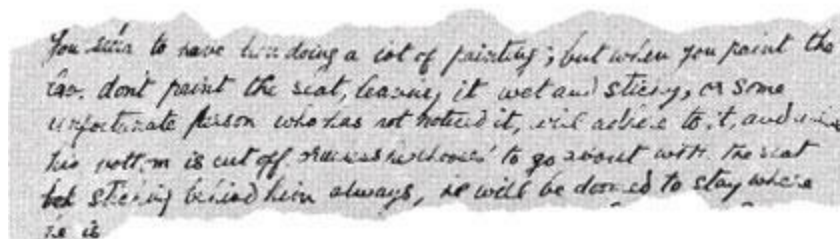 You seem to have been doing a lot of painting; but when you paint the
Lav. don't paint the seat, leaving it wet and sticky, or some
unfortunate person who has not noticed it, will adhere to it, and unless
his bottom is cut off, or unless he chooses to go about with the seat
sticking behind him always, he will be doomed to stay where
he is